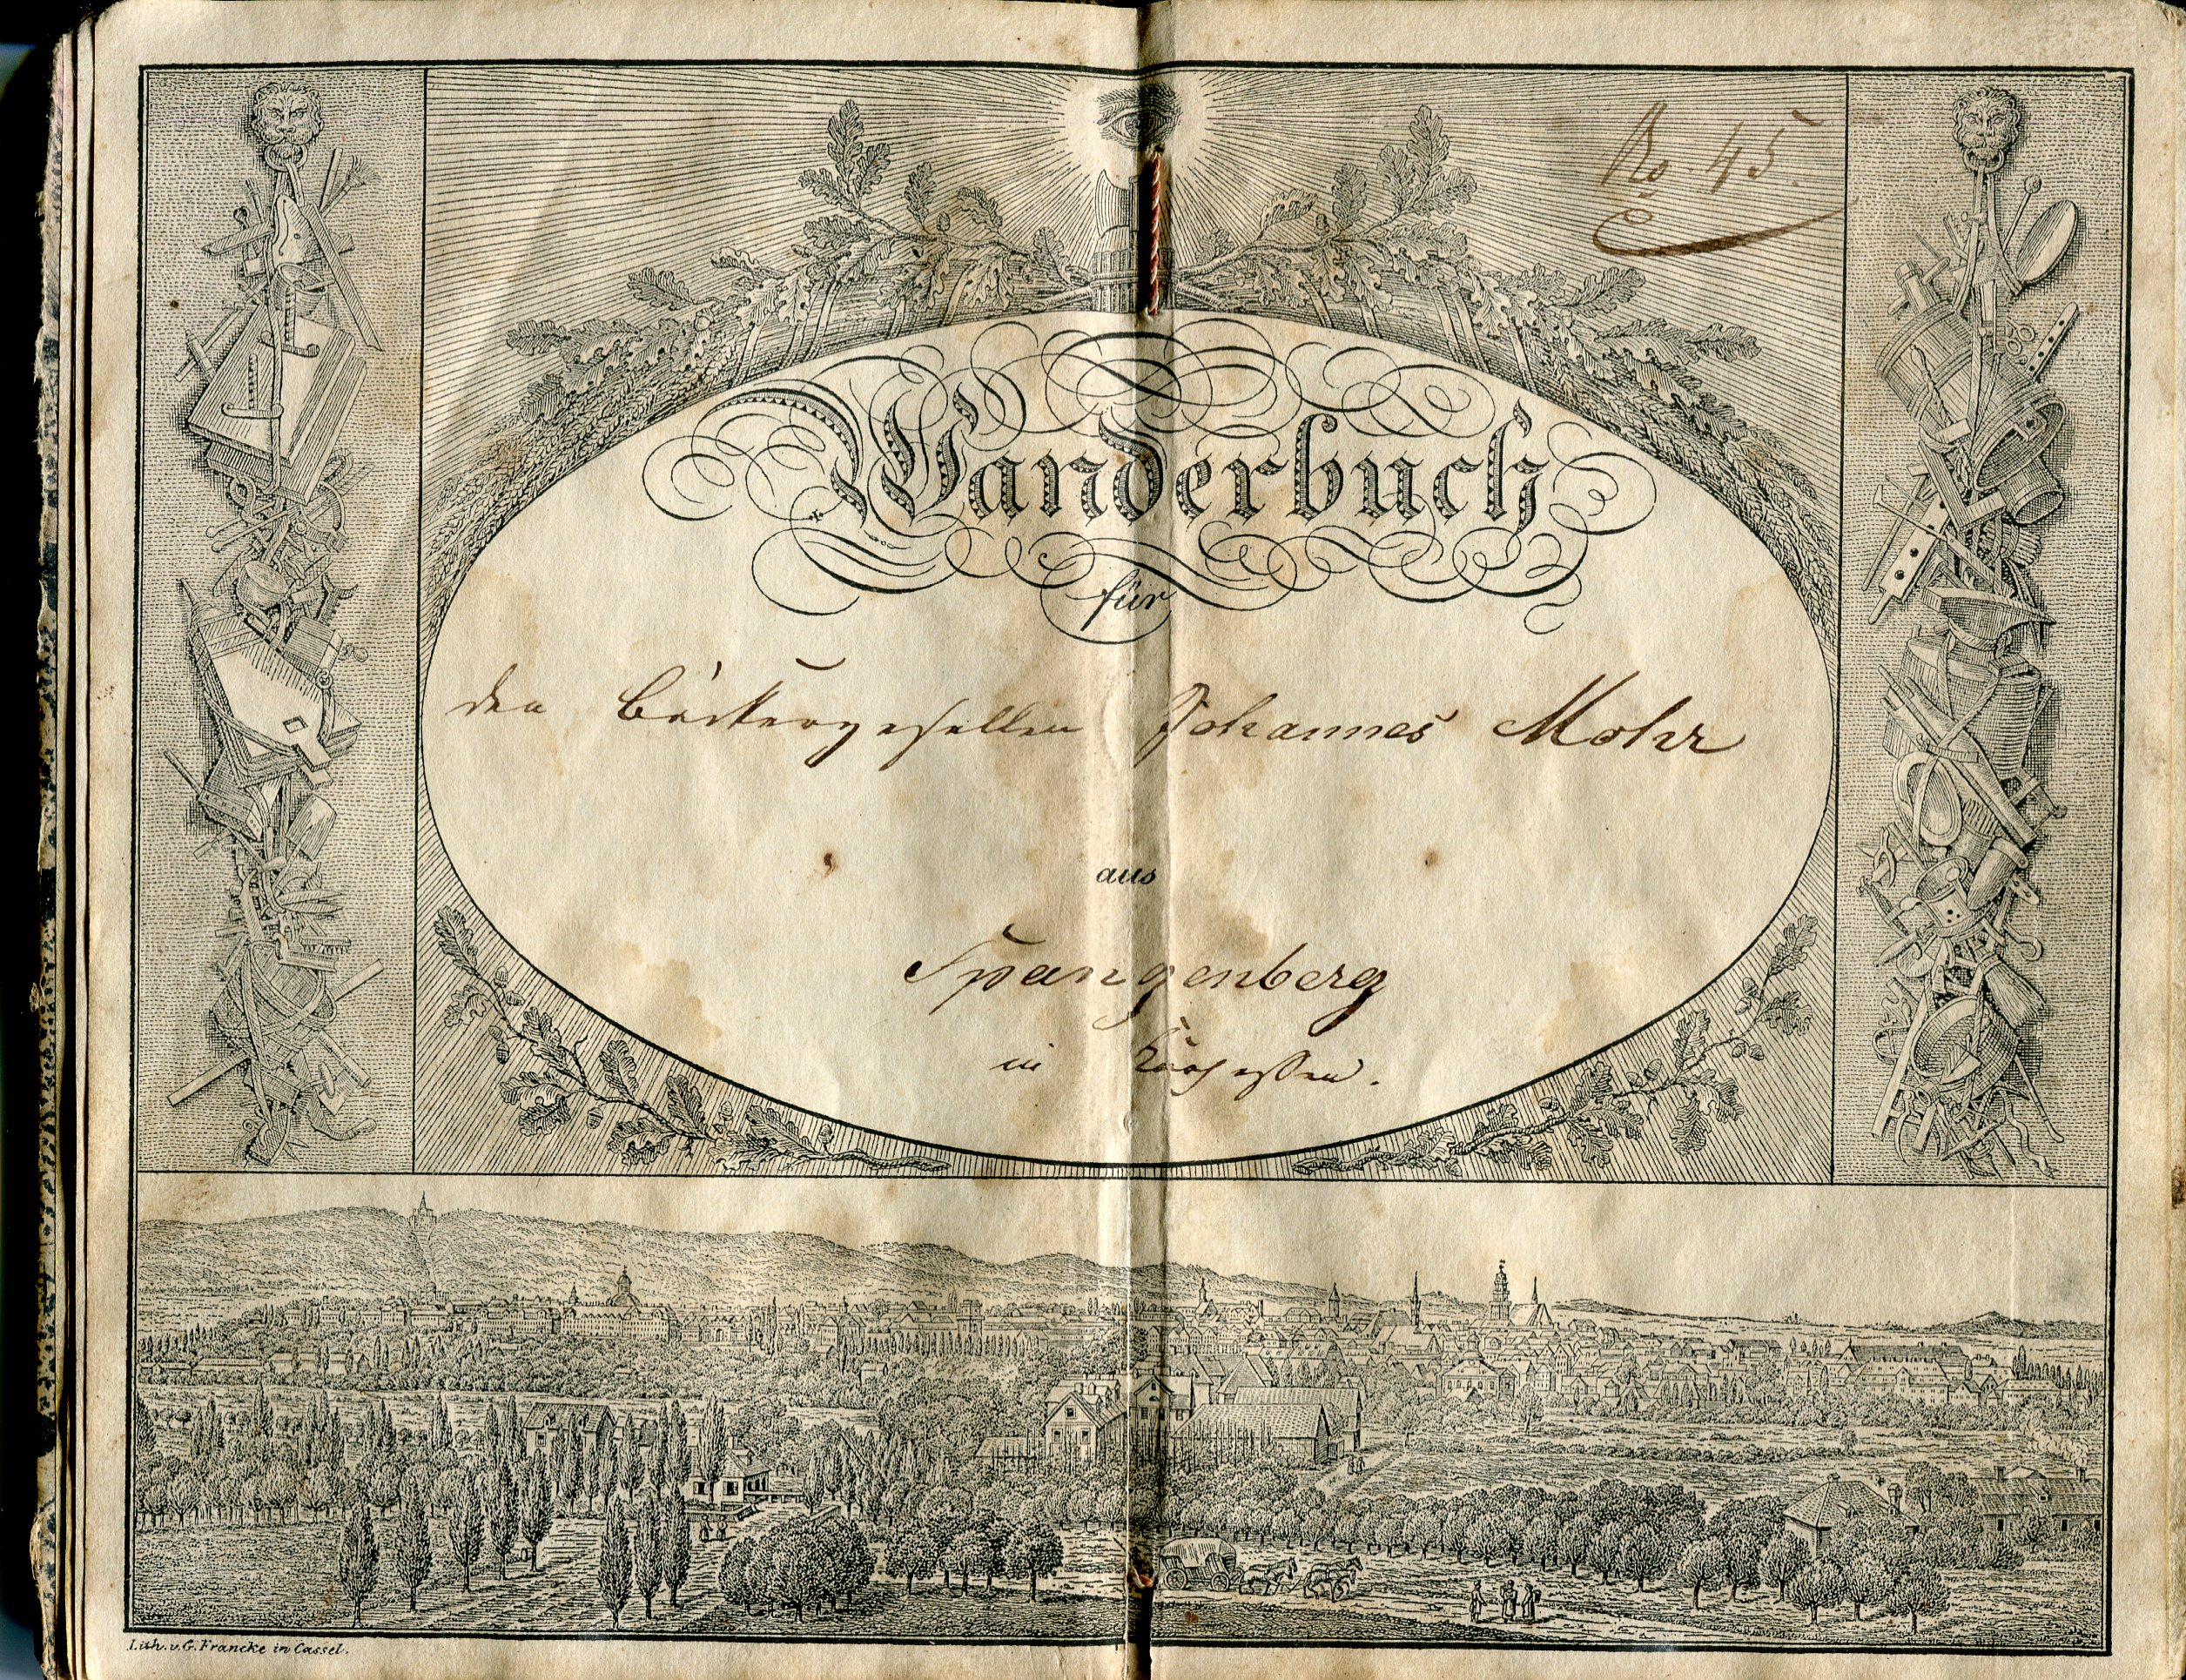 No. 45.
Wanderbuch
für
den Bäckergesellen Johannes Mohr
aus
Spangenberg
in Kurhessen.
Lith. v. G. Francke in Cassel.